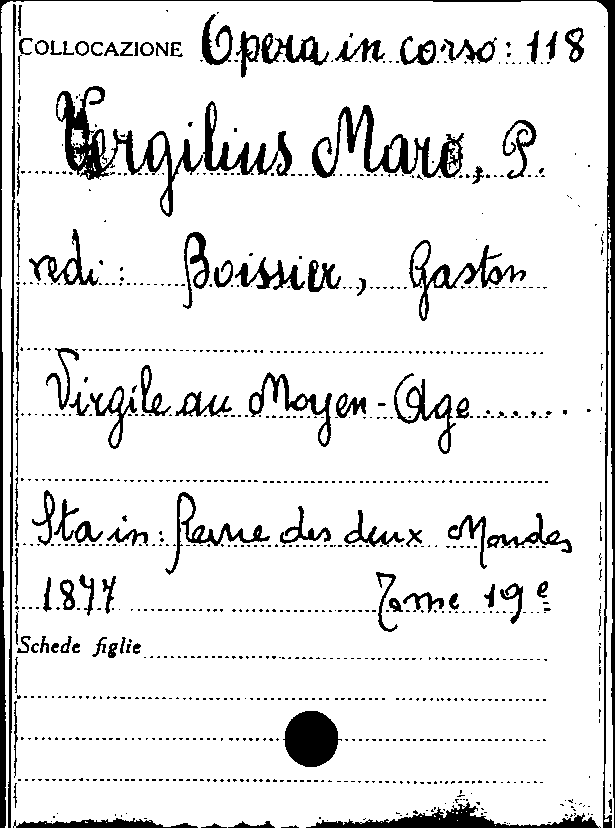 COLLOCAZIONE Opera in corso: 118
Vergilius Maro, P.
vedi: Boissier, Gaston
Virgile au Moyen-Age.......
Sta in: Revue des deux Mondes
1877 Tome 19e
Schede figlie